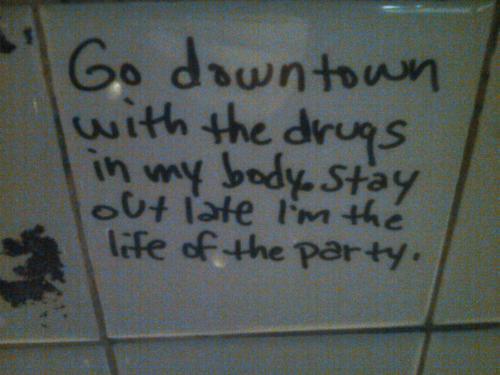 Go downtown
with the drugs
in my body. Stay
out late I'm the
life of the party.